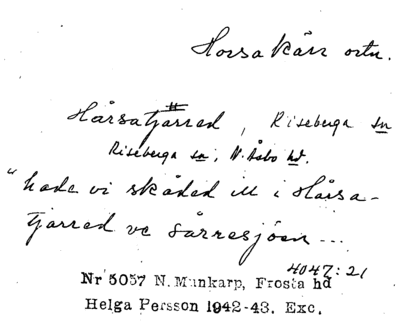 Horsakärr ortn.
Hårsatjärred, Riseberga sn
Riseberga sn, N. Åsbo hd.
"hade vi skåded ill i Hårsa-
tjarred ve Sårresjöen ---
4047:21
Nr 5057 N. Munkarp, Frosta hd
Helga Persson 1942-43. Exc.